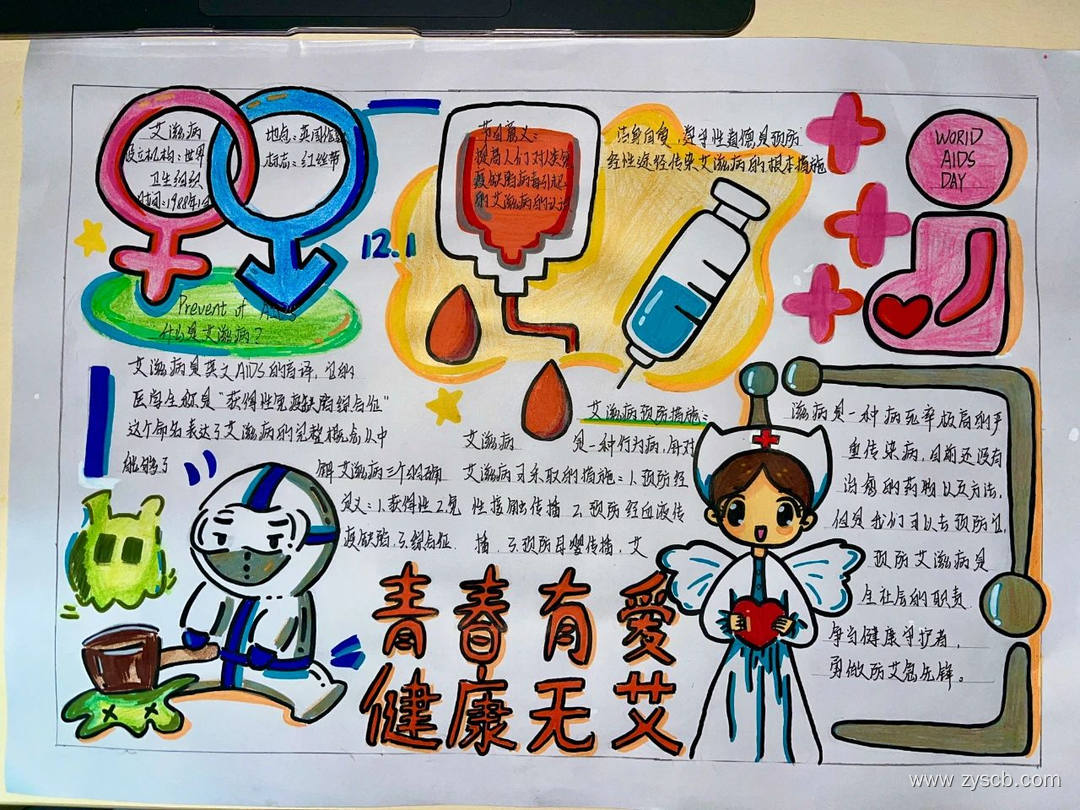 艾滋病
设立机构:世界
卫生组织
时间:1988年1月
地点:英国伦敦
标志:红丝带
12.1
Prevent of AIDS
什么是艾滋病?
节日意义:
提高人们对人类免
疫缺陷病毒引起
的艾滋病的认识
洁身自爱,遵守性道德是预防
经性途径传染艾滋病的根本措施
WORID
AIDS
DAY
艾滋病是英文AIDS的音译,它的
医学全称是"获得性免疫缺陷综合征"
这个命名表达了艾滋病的完整概念从中
能够了
解艾滋病三个明确
定义:1.获得性 2.免
疫缺陷.3.综合征.
艾滋病预防措施:
艾滋病 是一种行为病,针对
艾滋病可采取的措施:1.预防经
性接触传播 2.预防经血液传
播.3.预防母婴传播,艾
滋病是一种病死率极高的严
重传染病,目前还没有
治愈的药物以及方法,
但是我们可以去预防它,
预防艾滋病是
全社会的职责
争当健康守护者,
勇做防艾急先锋。
青春有愛
健康无艾
www.zyscb.com